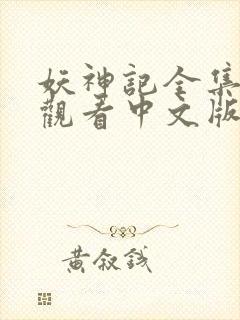 妖神記全集
觀看中文版
黃敘錢